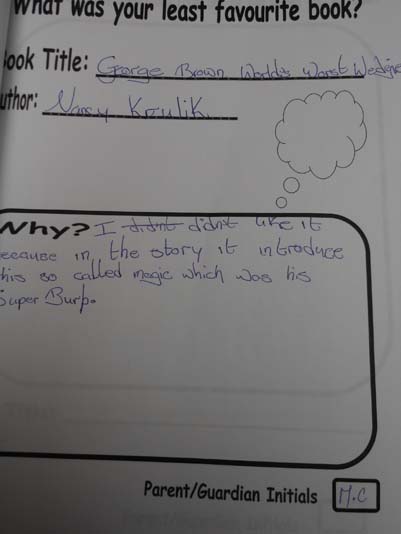 What was your least favourite book?
ook Title: George Brown World's Worst Wedgie
uthor: Nancy Krulik
Why? I didnt didn't like it
ecause in the story it introduce
his so called magic which was his
Super Burp.
Parent/Guardian Initials M.C